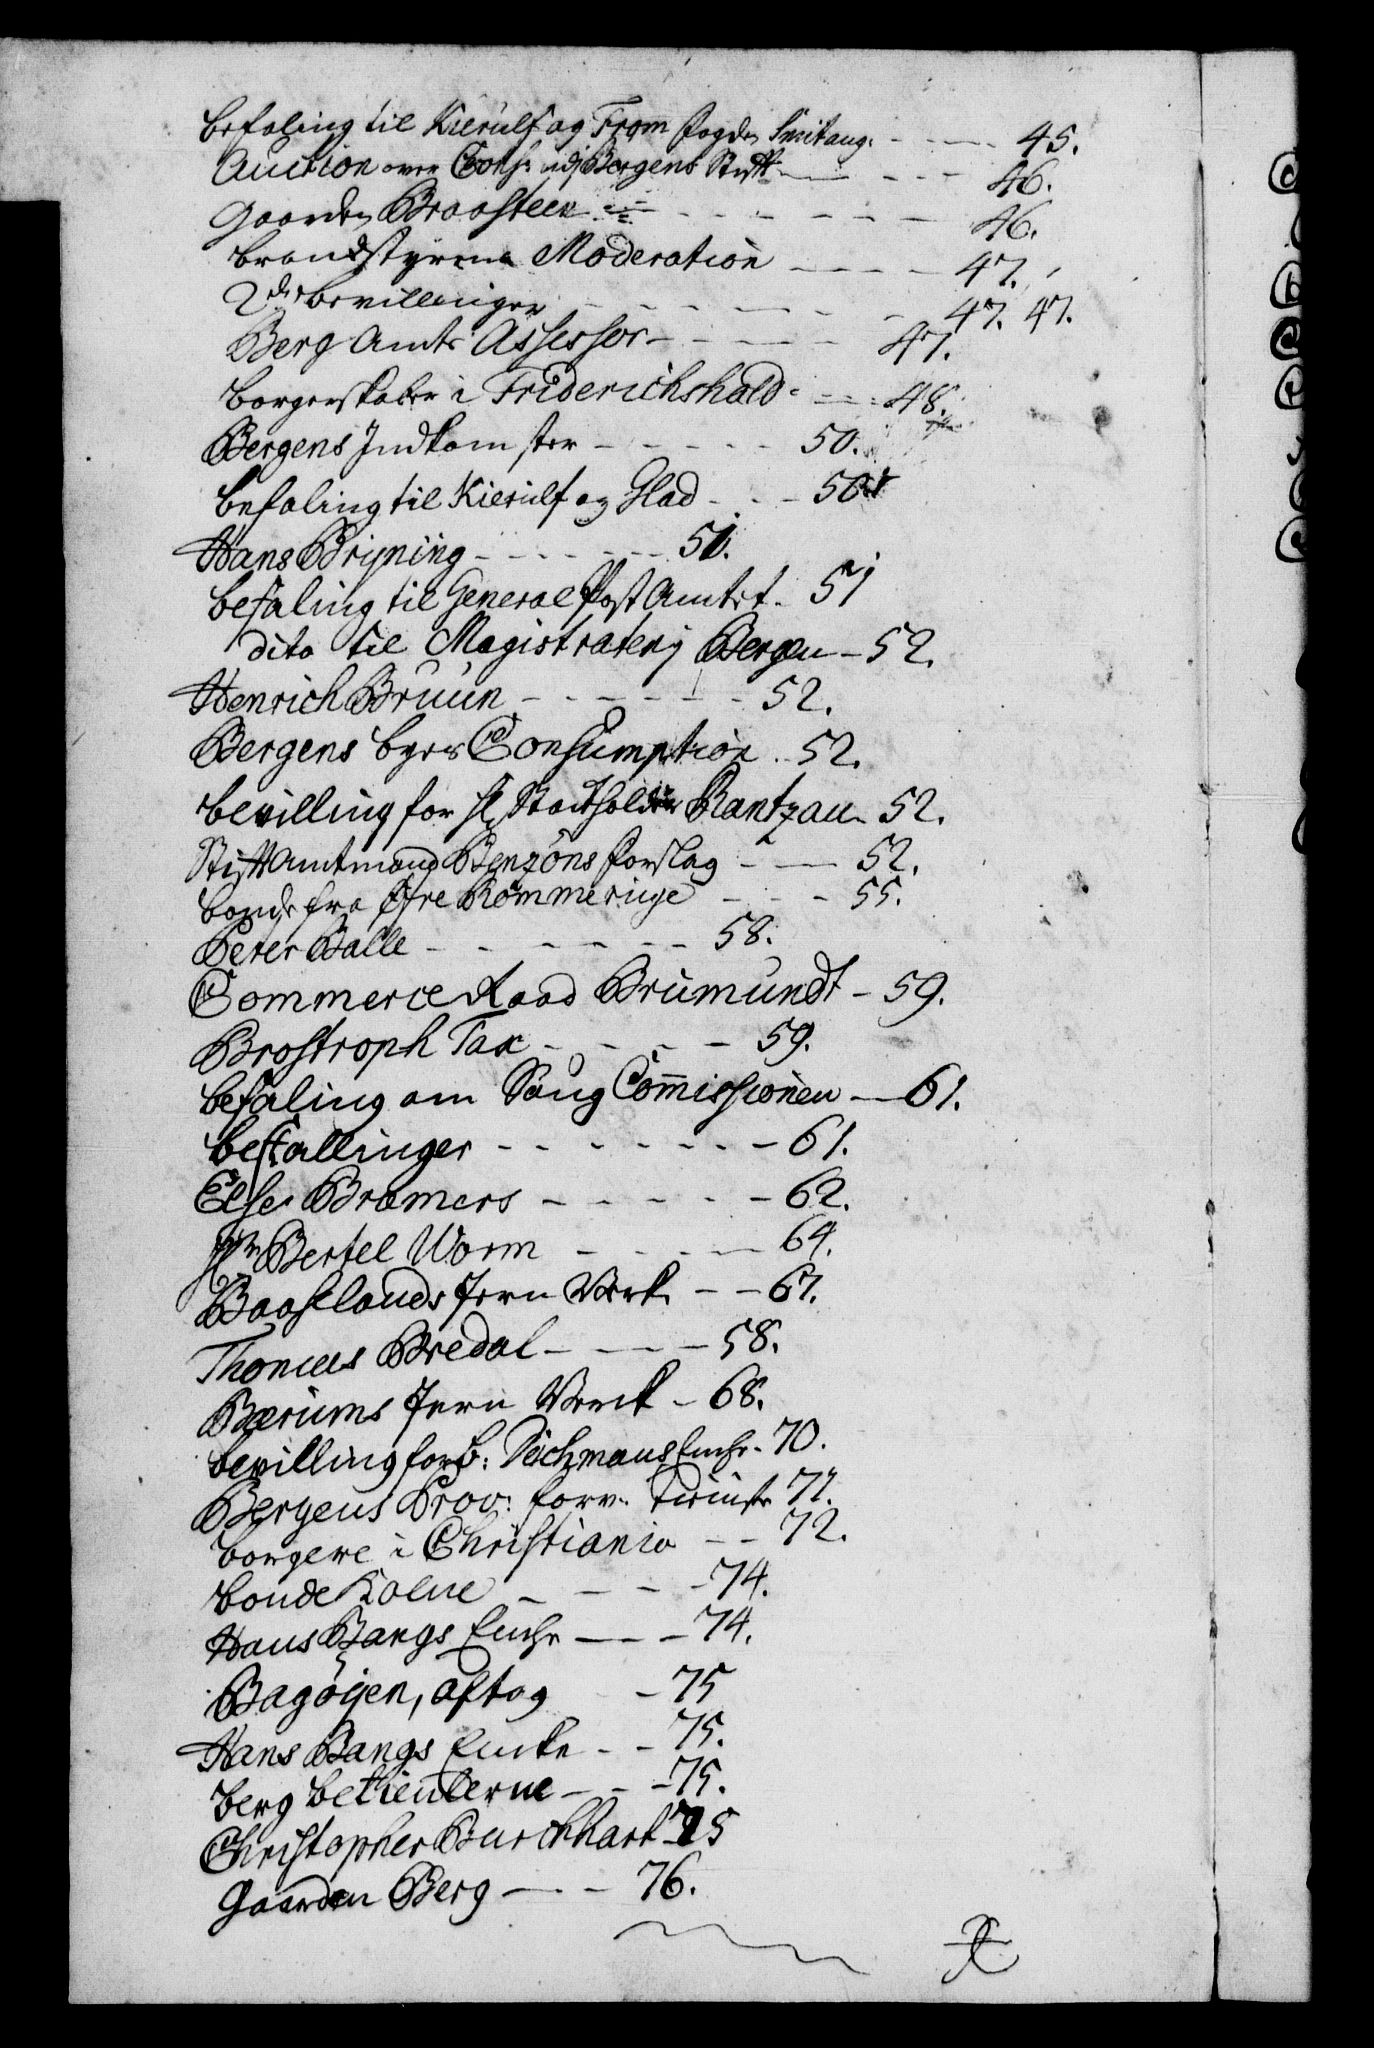 befaling til Kierulf og From Fogden Smitang. - - - 45.
Auction over Cons: udj Bergens Stift - - - 46.
Gaarden Braasteen - - - - - - 46.
brandstyrens Moderation - - - - 47.
2de bevillinger - - - - - - 47. 47.
Berg Amts Assessor - - - - 47.
borgerskaber i Friderichshald - - - 48.
Bergens Indkomster - - - - - 50.
befaling til Kierulf og Glad - - - 50
Hans Bryning - - - - - - 51.
befaling til General Post Amtet. 51
dito til Magistraten j Bergen - 52.
Henrich Bruun - - - - - - 52.
Bergens byes Consumption .. 52.
bevilling for Hr Stadtholder Rantzau - 52.
Stiftamtmand Benzons forslag - - 52.
bonde fra Øfre Rommerige - - - 55.
Peter Balle - - - - - - 58.
Commerce Raad Brumundt - 59.
Brostroph Tax - - - - - 59.
befaling om Saug Commissionen - 61.
bestallinger - - - - - - - 61.
Else Bramers - - - - - 62.
Hr Bertel Worm - - - - 64.
Baaselands Jern Verk - - 67.
Thomas Bredal - - - - 58.
Bærums Jern Verck - 68.
bevilling for B: Deichmans Enche - 70.
Bergens Prov: forv: 71.
borgere i Christiania - - 72.
bonde Kolne - - - - 74.
Hans Bangs Enche - - - 74.
Bagøyen, aftog - 75
Hans Bangs Encke - - 75.
berg betienterne - - - 75.
Christopher Burchhart - 75
Gaarden Berg - - - 76.